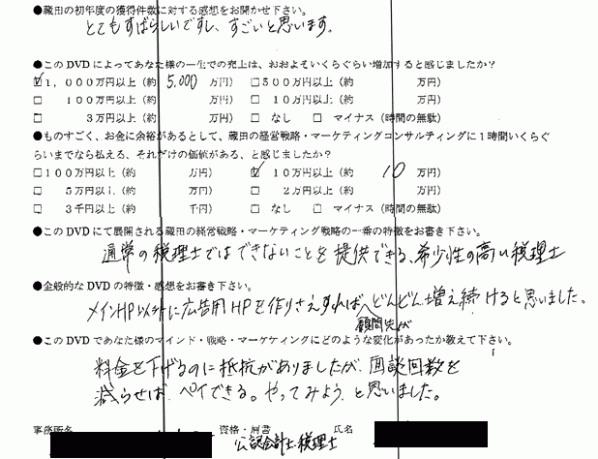 ●蔵田の初年度の獲得件数に対する感想をお聞かせ下さい。
とてもすばらしいですし、すごいと思います。
●このDVDによってあなた様の一生での売上は、おおよそいくらぐらい増加すると感じましたか?
☑1,000万円以上(約 5,000 万円) □500万円以上(約 万円)
□ 100万円以上(約 万円) □ 10万円以上(約 万円)
□ 3万円以上(約 万円) □ なし □ マイナス(時間の無駄)
●ものすごく、お金に余裕があるとして、蔵田の経営戦略・マーケティングコンサルティングに1時間いくらぐ
らいまでなら払える、それだけの価値がある、と感じましたか?
□100万円以上(約 万円) ☑ 10万円以上(約 10 万円)
□ 5万円以上(約 万円) □ 2万円以上(約 万円)
□ 3千円以上(約 千円) □ なし □ マイナス(時間の無駄)
●このDVDにて展開される蔵田の経営戦略・マーケティング戦略の一番の特徴をお書き下さい。
通常の税理士ではできないことを提供できる、希少性の高い税理士
●全般的なDVDの特徴・感想をお書き下さい。
メインHP以外に広告用HPを作りさえすれば、どんどん増え続けると思いました。
顧問先が
●このDVDであなた様のマインド・戦略・マーケティングにどのような変化があったか教えて下さい。
料金を下げるのに抵抗がありましたが、面談回数を
減らせば、ペイできる。やってみよう、と思いました。
事務所名 資格・肩書 氏名
公認会計士税理士